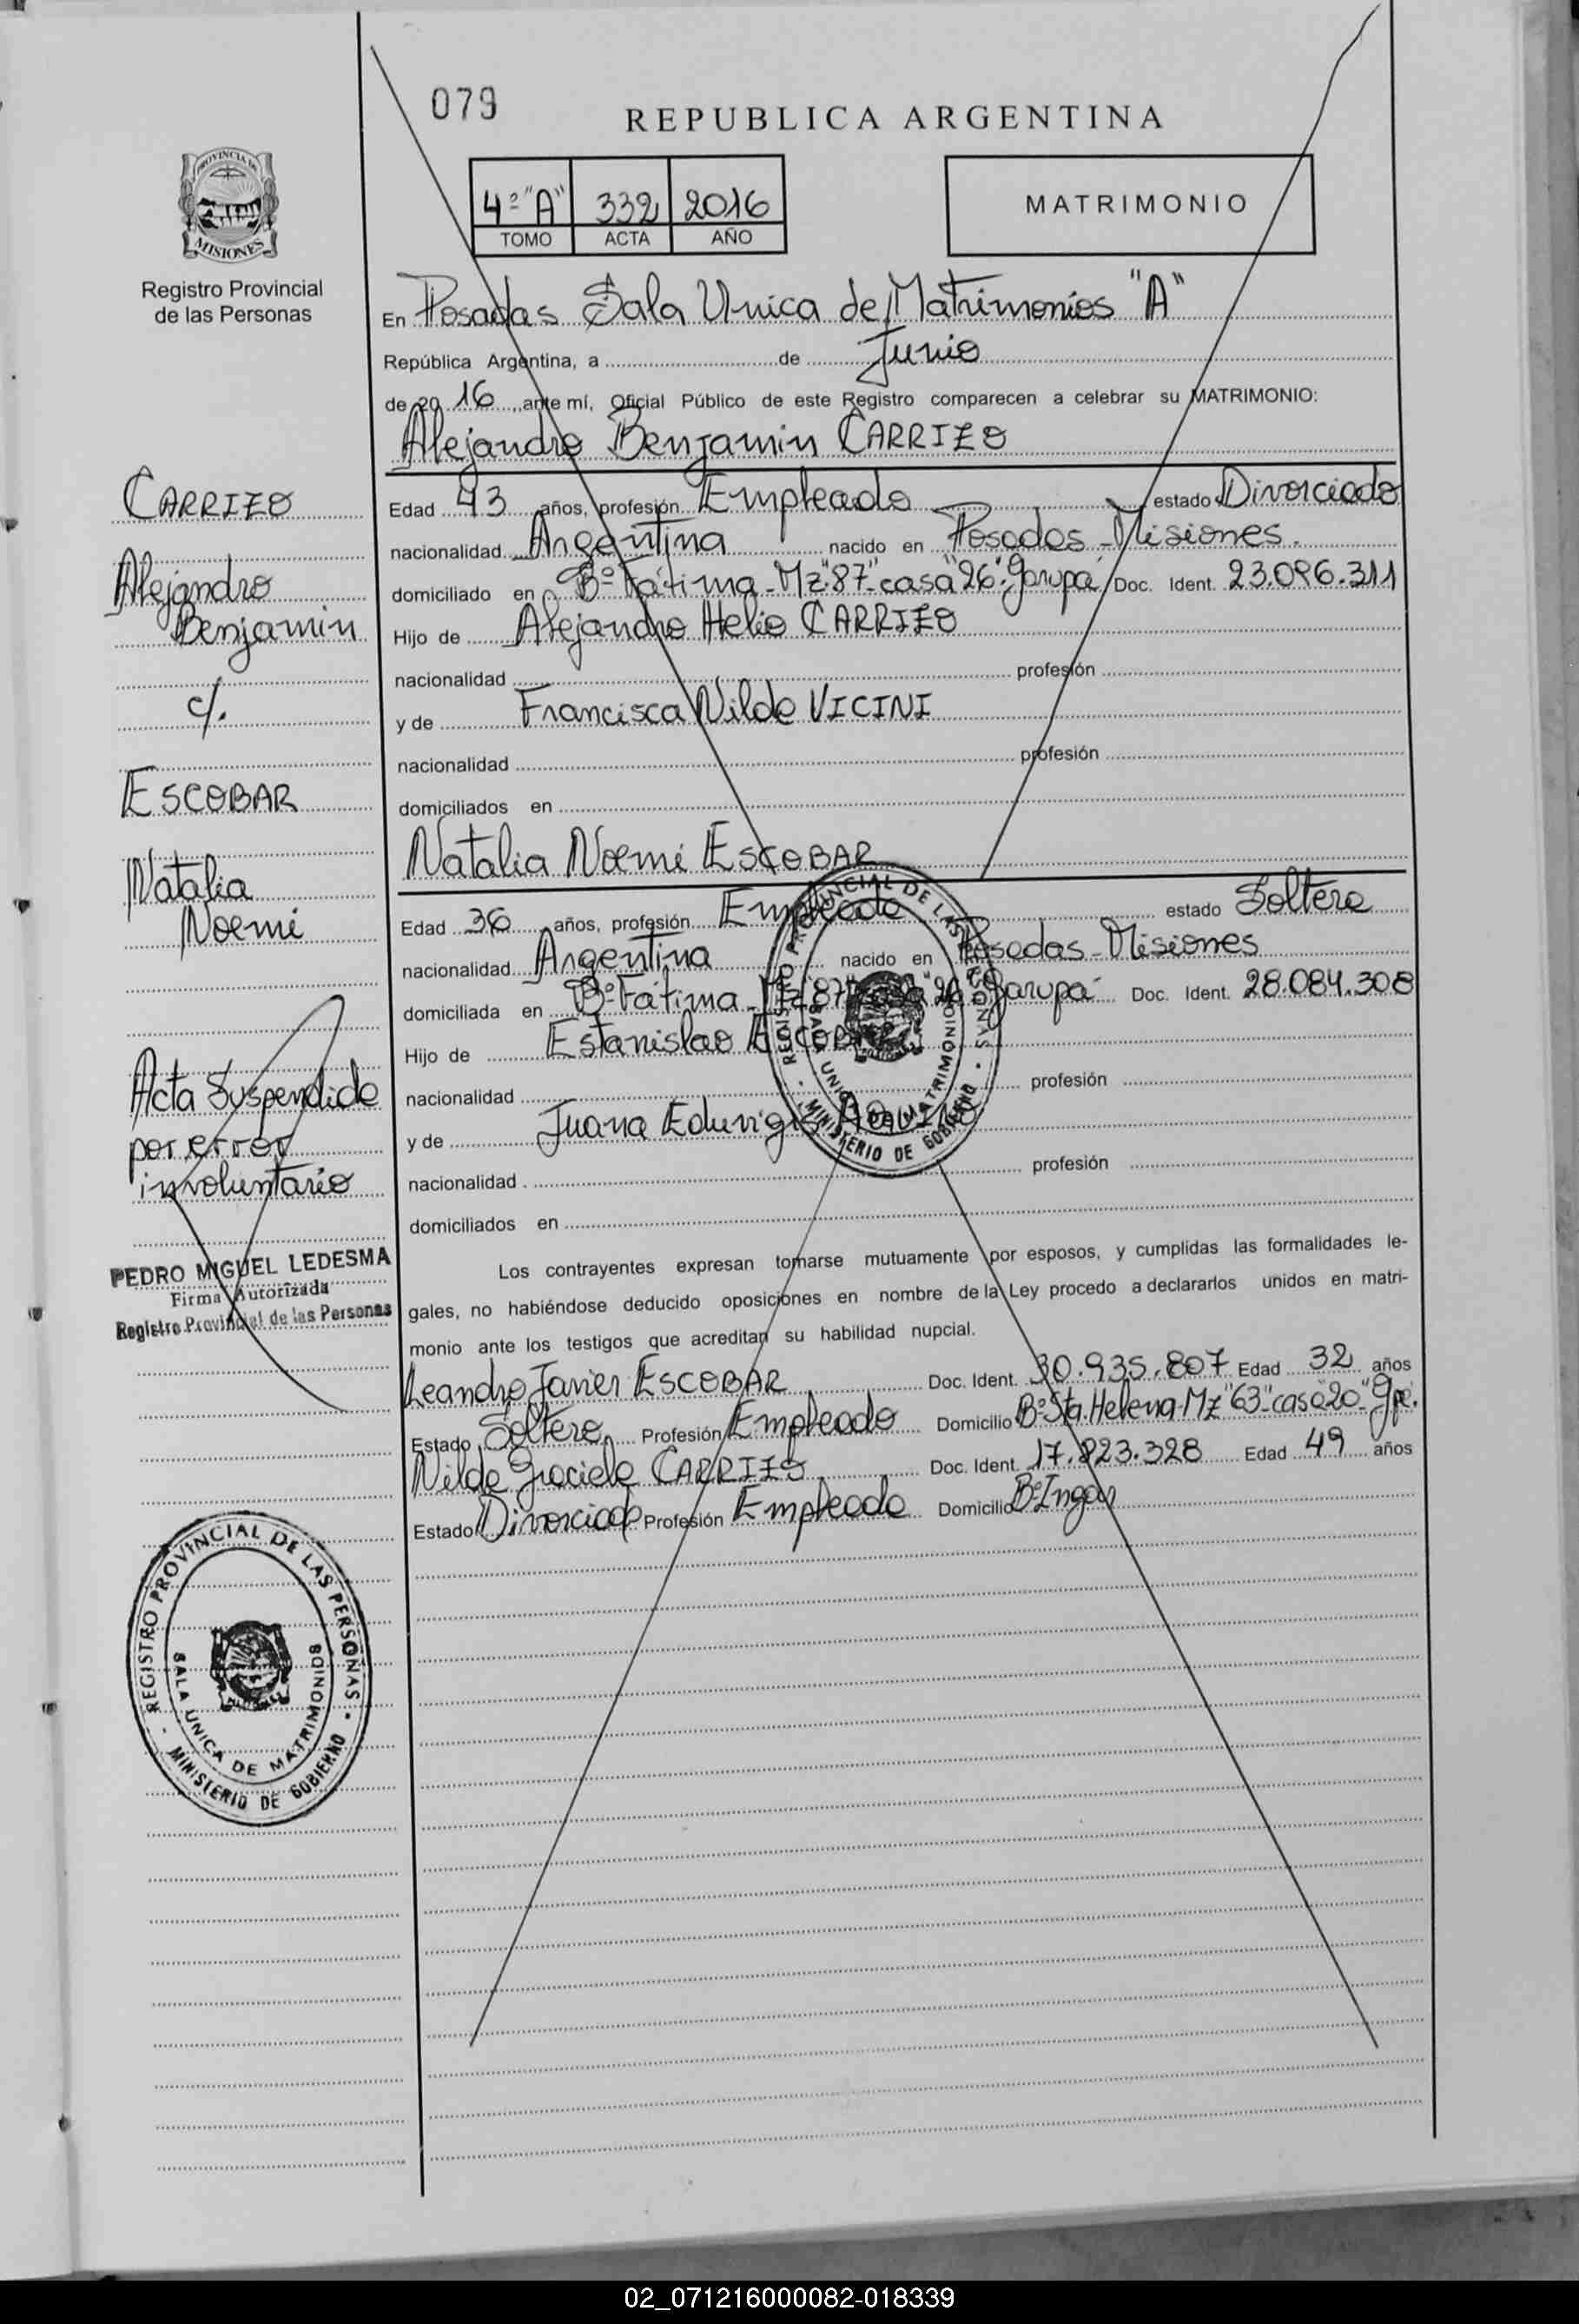 079
REPUBLICA ARGENTINA
PROVINCIA DE
MISIONES
Registro Provincial
de las Personas
4º "A" 332 2016
TOMO ACTA AÑO
MATRIMONIO
En Posadas Sala Unica de Matrimonios "A"
República Argentina, a de Junio
de 20 16 , ante mí, Oficial Público de este Registro comparecen a celebrar su MATRIMONIO:
Alejandro Benjamin CARRIZO
Edad 43 años, profesión Empleado estado Divorciado
nacionalidad Argentina nacido en Posadas-Misiones.
domiciliado en Bº Fátima-Mz"87"casa"26"-Garupá Doc. Ident. 23.096.311
Hijo de Alejandro Helio CARRIZO
nacionalidad profesión
y de Francisca Nilda VICINI
nacionalidad profesión
domiciliados en
Natalia Noemi ESCOBAR
Edad 36 años, profesión Empleada estado Soltera
nacionalidad Argentina nacido en Posadas-Misiones
domiciliada en Bº Fátima-Mz"87"casa"26"-Garupá Doc. Ident. 28.084.308
Hijo de Estanislao ESCOBAR
nacionalidad profesión
y de Juana Eduvigis AQUINO
nacionalidad profesión
domiciliados en
Los contrayentes expresan tomarse mutuamente por esposos, y cumplidas las formalidades le-
gales, no habiéndose deducido oposiciones en nombre de la Ley procedo a declararlos unidos en matri-
monio ante los testigos que acreditan su habilidad nupcial.
Leandro Javier ESCOBAR Doc. Ident. 30.935.807 Edad 32 años
Estado Soltero Profesión Empleado Domicilio Bº Sta. Helena-Mz"63"-casa"20"-Gpá.
Nilda Graciela CARRIZO Doc. Ident. 17.823.328 Edad 49 años
Estado Divorciada Profesión Empleada Domicilio Bº Ingar
CARRIZO
Alejandro
Benjamin
c/.
ESCOBAR
Natalia
Noemi
Acta Suspendida
por error
involuntario
PEDRO MIGUEL LEDESMA
Firma Autorizada
Registro Provincial de las Personas
REGISTRO PROVINCIAL DE LAS PERSONAS
SALA UNICA DE MATRIMONIOS
MINISTERIO DE GOBIERNO
REGISTRO PROVINCIAL DE LAS PERSONAS
SALA UNICA DE MATRIMONIOS
MINISTERIO DE GOBIERNO
02_071216000082-018339